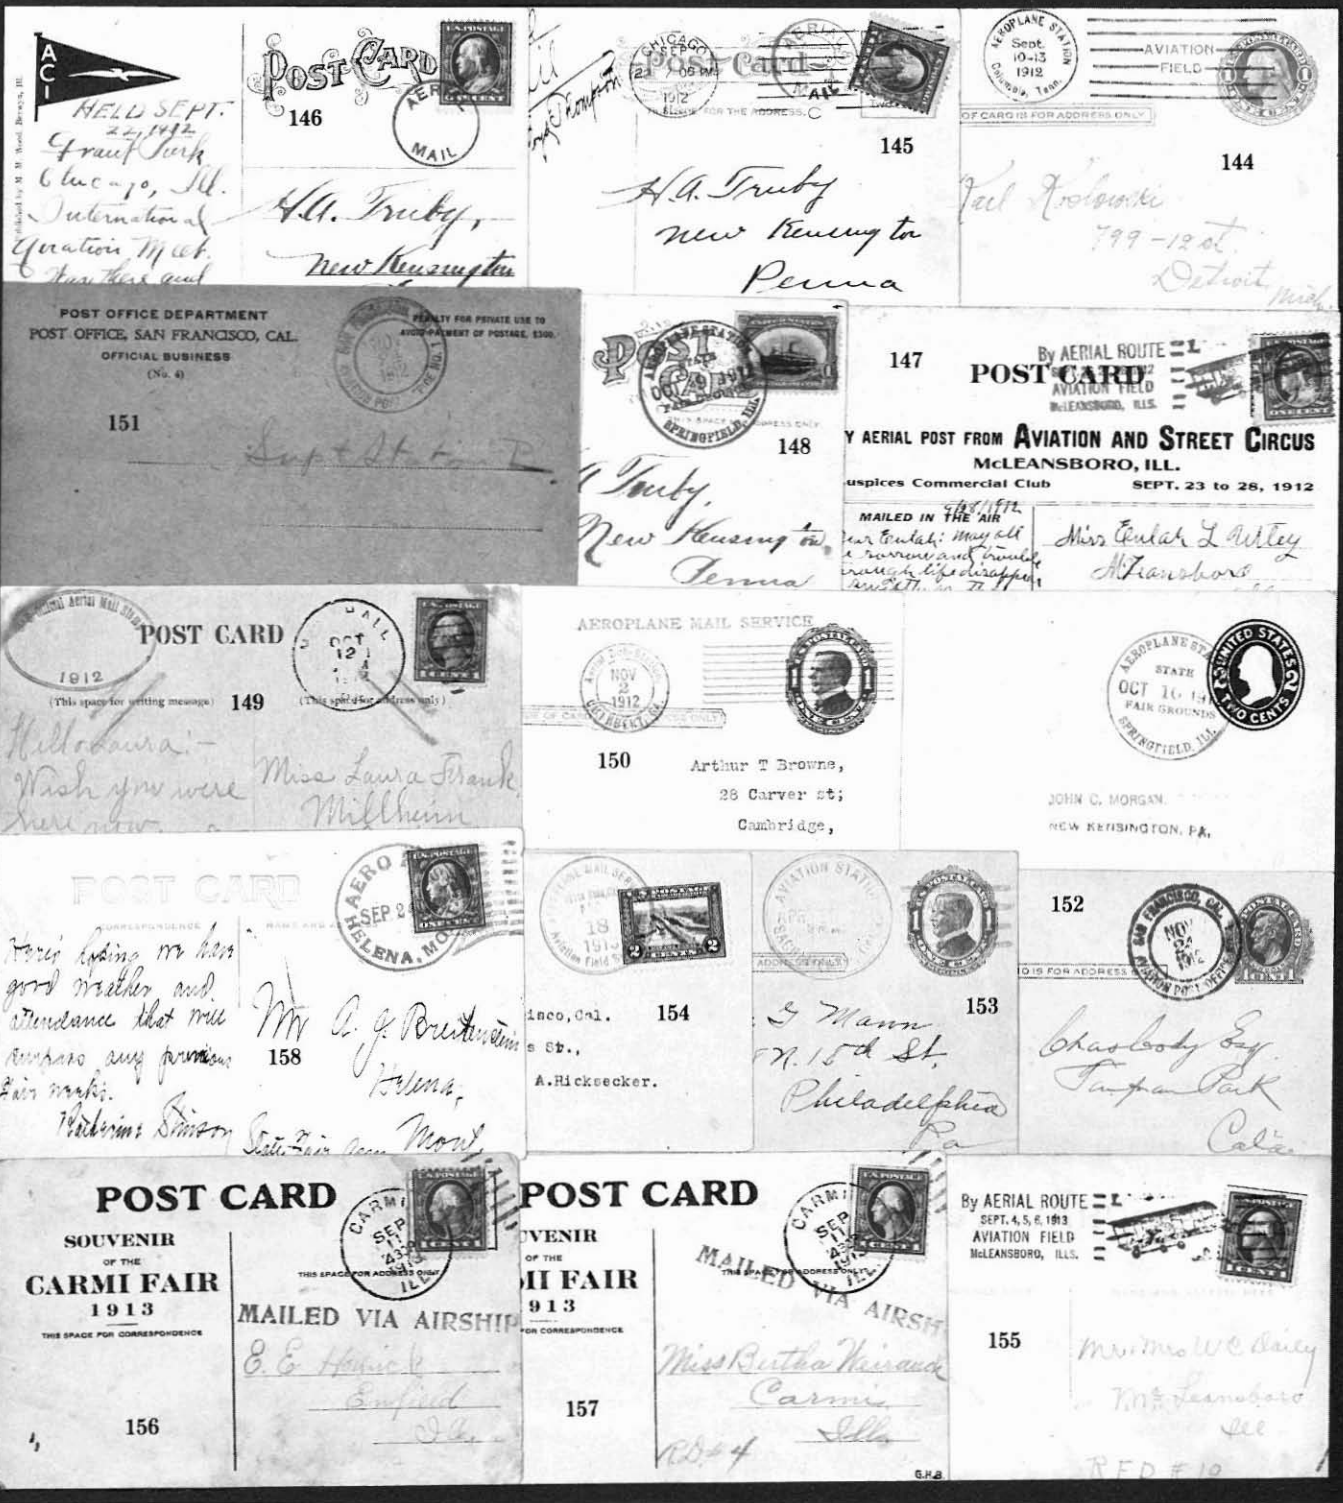 ACI
HELD SEPT.
22, 1912
Grant Park
Chicago, Ill.
International
Aviation Meet.
Was there and
POST CARD
146
AERIAL
MAIL
H.A. Truby,
New Kensington
Thompson
CHICAGO
SEP
1912
Post Card
AERIAL
MAIL
SPACE FOR THE ADDRESS.
145
H.A. Truby
New Kensington
Penna
AEROPLANE STATION
Sept.
10-13
1912
Columbia, Tenn.
AVIATION
FIELD
OF CARD IS FOR ADDRESS ONLY
144
Karl Koslowski
799-12 st.
Detroit
Mich
POST OFFICE DEPARTMENT
POST OFFICE, SAN FRANCISCO, CAL.
OFFICIAL BUSINESS
(No. 4)
PENALTY FOR PRIVATE USE TO
AVOID PAYMENT OF POSTAGE, $300.
NOV
1912
151
Supt Station D
POST
CARD
AEROPLANE STATION
STATE
FAIR GROUNDS
SPRINGFIELD, ILL.
148
Truby,
New Kensington,
Penna
147
By AERIAL ROUTE
POST CARD
AVIATION FIELD
McLEANSBORO, ILLS.
Y AERIAL POST FROM AVIATION AND STREET CIRCUS
McLEANSBORO, ILL.
uspices Commercial Club
SEPT. 23 to 28, 1912
MAILED IN THE AIR
9/28/1912
Eulah: may all
sorrow and trouble
through life disappear
Miss Eulah L
Official Aerial Mail
1912
POST CARD
OCT
12
(This space for writing message)
149
(This space for address only)
Hello Laura:-
Wish you were
here now.
Miss Laura Frank
Millheim
AEROPLANE MAIL SERVICE
NOV
2
1912
CUTHBERT, GA.
150
Arthur T Browne,
28 Carver st;
Cambridge,
AEROPLANE STA
STATE
OCT 16 191
FAIR GROUNDS
SPRINGFIELD, ILL
UNITED STATES
TWO CENTS
JOHN C. MORGAN.
NEW KENSINGTON, PA,
POST CARD
CORRESPONDENCE
NAME AND
AERO
SEP 2
HELENA, MO
Here's hoping we have
good weather and
attendance that will
surpass any previous
Fair weeks.
Katherine Stinson
158
Mr A. J. Breitenstein
Helena,
State Fair
Mont
18
191
Aviation Field
2 CENTS 2
isco, Cal.
154
s St.,
A. Ricksecker.
AVIATION STATION
ADDRESS ONLY
153
Mann
N. 15th St.
Philadelphia
Pa
152
SAN FRANCISCO, CAL.
NOV
24
1912
AVIATION POST OFFICE
D IS FOR ADDRESS
Chas Cody Esq.
Tanforan Park
Cala.
POST CARD
SOUVENIR
OF THE
CARMI FAIR
1913
THIS SPACE FOR CORRESPONDENCE
CARMI
SEP
11
1913
ILL
THIS SPACE FOR ADDRESS ONLY
MAILED VIA AIRSHIP
E. E.
Enfield
Ill.
156
POST CARD
UVENIR
OF THE
MI FAIR
913
FOR CORRESPONDENCE
CARMI
SEP
11
1913
ILL
THIS SPACE FOR ADDRESS ONLY
MAILED VIA AIRSH
Miss Bertha
Carmi
Ills
157
R.D. #4
G.H.B.
By AERIAL ROUTE
SEPT. 4, 5, 6, 1913
AVIATION FIELD
McLEANSBORO, ILLS.
155
Mr & Mrs W C Daily
McLeansboro
Ill
R F D # 10